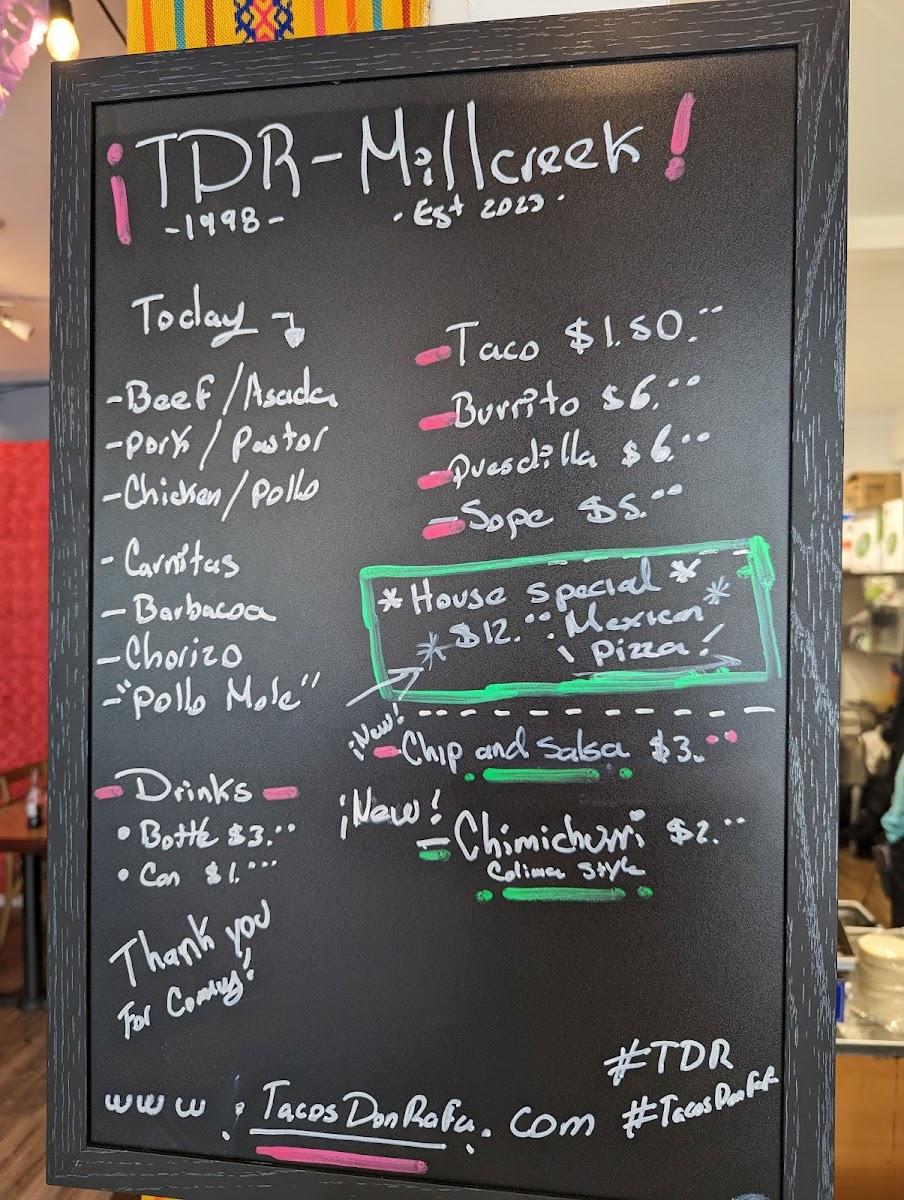 ¡TDR - Millcreek!
-1998- · Est 2023 ·
Today
- Beef / Asada
- Pork / Pastor
- Chicken / Pollo
- Carnitas
- Barbacoa
- Chorizo
- "Pollo Mole"
- Drinks -
• Bottle $3.00
• Can $1.00
Thank you
For Coming!
- Taco $1.50.
- Burrito $6.00
- Quesdilla $6.00
- Sope $5.00
* House special *
* $12.00 Mexican *
Pizza!
¡New!
- Chip and Salsa $3.00
¡New!
- Chimichurri $2.00
Colima Style
#TDR
#TacosDonRafa
www.TacosDonRafa.com